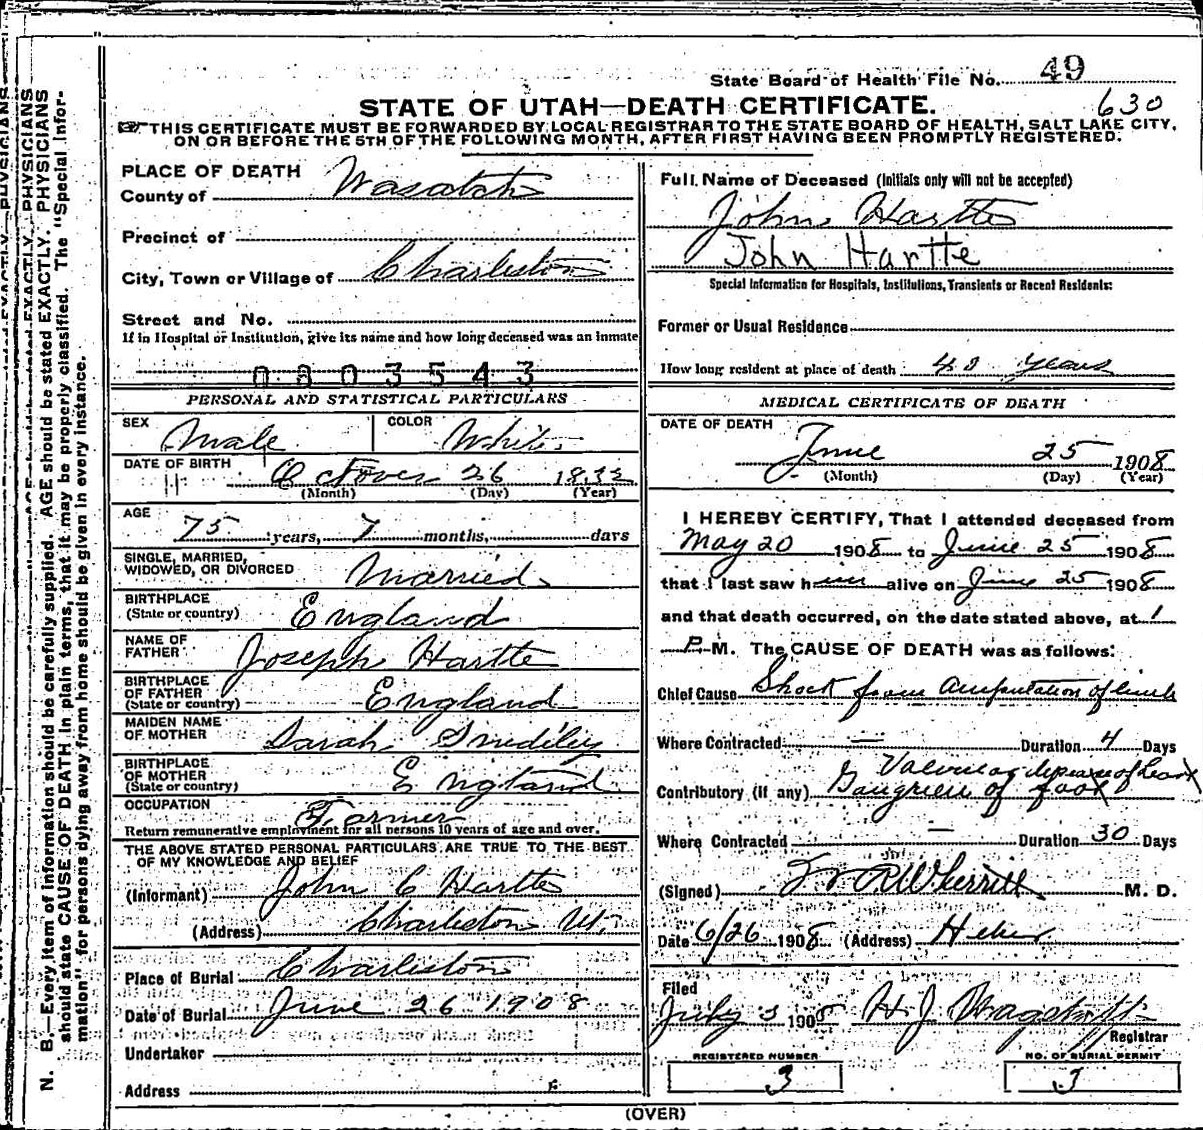 State Board of Health File No. 49
STATE OF UTAH—DEATH CERTIFICATE. 630
THIS CERTIFICATE MUST BE FORWARDED BY LOCAL REGISTRAR TO THE STATE BOARD OF HEALTH, SALT LAKE CITY,
ON OR BEFORE THE 5TH OF THE FOLLOWING MONTH, AFTER FIRST HAVING BEEN PROMPTLY REGISTERED.
PLACE OF DEATH
County of Wasatch
Precinct of
City, Town or Village of Charleston
Street and No.
If in Hospital or Institution, give its name and how long deceased was an inmate
0803543
PERSONAL AND STATISTICAL PARTICULARS
SEX Male COLOR White
DATE OF BIRTH October 26 1832
(Month) (Day) (Year)
AGE
75 years, 7 months, days
SINGLE, MARRIED,
WIDOWED, OR DIVORCED Married
BIRTHPLACE
(State or country) England
NAME OF
FATHER Joseph Hartte
BIRTHPLACE
OF FATHER
(State or country) England
MAIDEN NAME
OF MOTHER Sarah Smediley
BIRTHPLACE
OF MOTHER
(State or country) England
OCCUPATION Farmer
Return remunerative employment for all persons 10 years of age and over.
THE ABOVE STATED PERSONAL PARTICULARS ARE TRUE TO THE BEST
OF MY KNOWLEDGE AND BELIEF
(Informant) John C Hartte
(Address) Charleston Ut.
Place of Burial Charleston
Date of Burial June 26 1908
Undertaker
Address
Full Name of Deceased (Initials only will not be accepted)
John Hartte
John Hartte
Special Information for Hospitals, Institutions, Transients or Recent Residents:
Former or Usual Residence
How long resident at place of death 40 years
MEDICAL CERTIFICATE OF DEATH
DATE OF DEATH
June 25 1908
(Month) (Day) (Year)
I HEREBY CERTIFY, That I attended deceased from
May 20 1908 to June 25 1908
that I last saw him alive on June 25 1908
and that death occurred, on the date stated above, at 1
P. M. The CAUSE OF DEATH was as follows:
Chief Cause Shock from amputation of limb
Where Contracted — Duration 4 Days
Valvular disease of heart
Contributory (if any) Gangrien of foot
Where Contracted — Duration 30 Days
(Signed) Wherritt M. D.
Date 6/26 1908 (Address) Heber
Filed
July 3 1908 H. J. Wagstaff
Registrar
REGISTERED NUMBER
3
NO. OF BURIAL PERMIT
3
(OVER)
N. B.—Every item of information should be carefully supplied. AGE should be stated EXACTLY. PHYSICIANS
should state CAUSE OF DEATH in plain terms, that it may be properly classified. The "Special Infor-
mation" for persons dying away from home should be given in every instance.